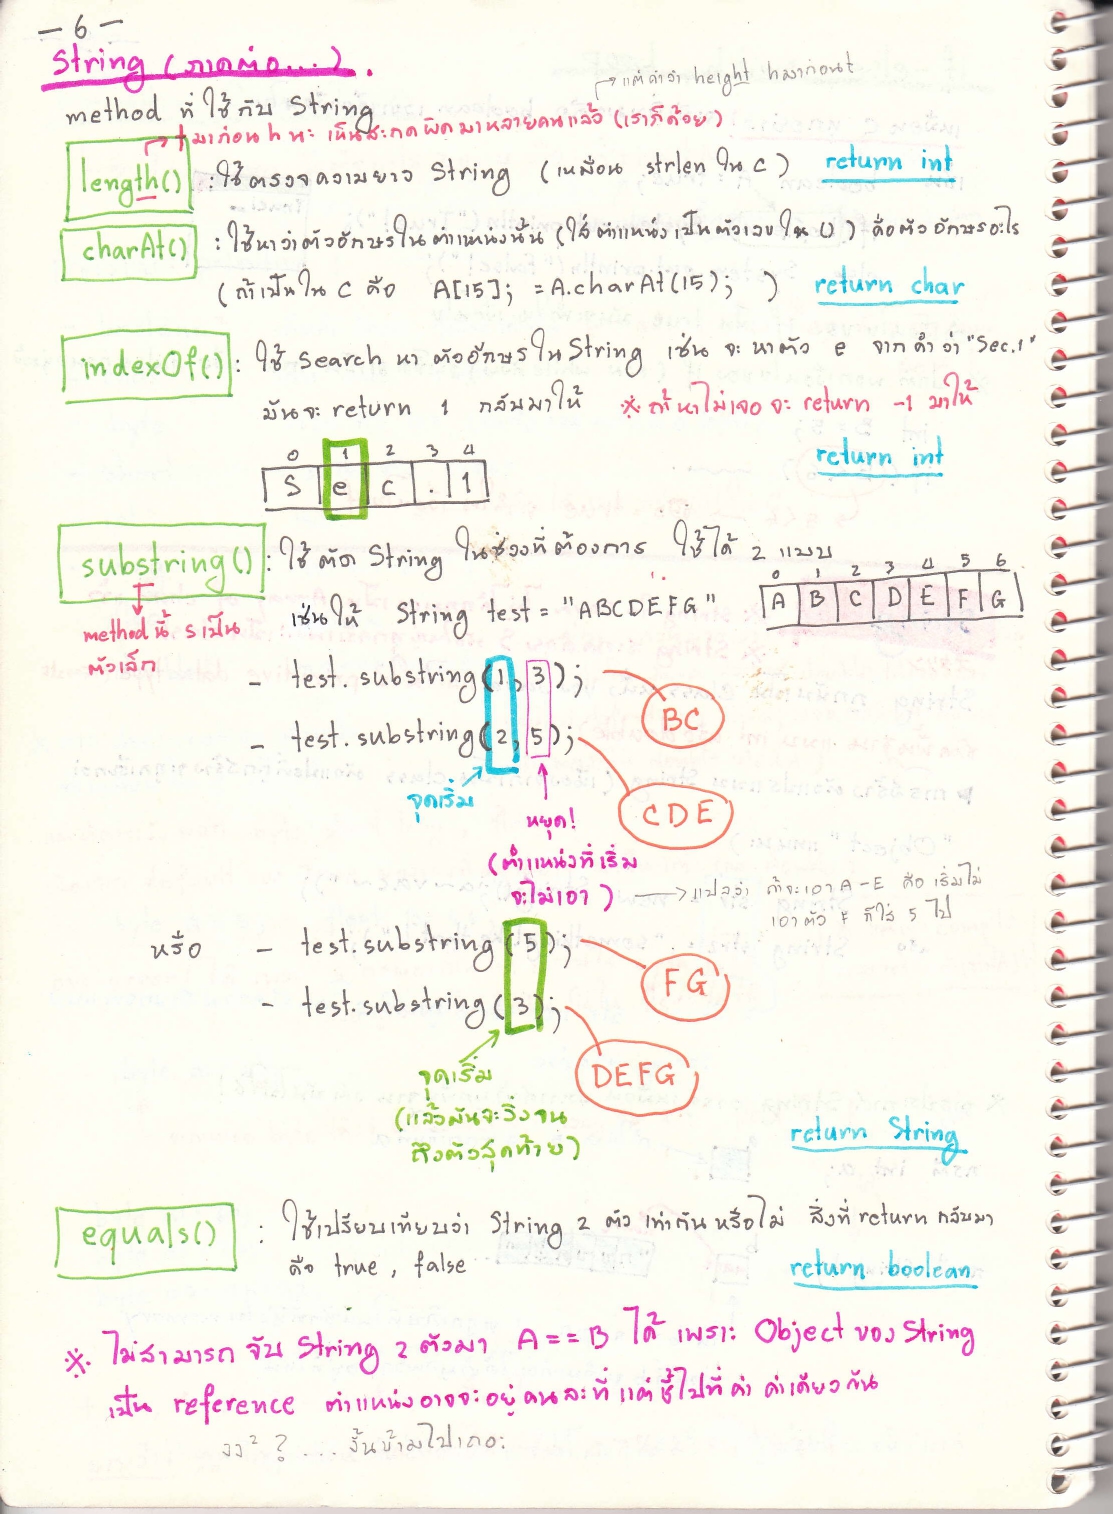 — 6 —
String (ภาคต่อ...).
method ที่ใช้กับ String
แต่คำว่า height h มาก่อน t
t มาก่อน h นะ เห็นสะกดผิดมาหลายคนแล้ว (เราก็ด้วย)
length() : ใช้ตรวจความยาว String (เหมือน strlen ใน C) return int
charAt() : ใช้หาว่าตัวอักษรในตำแหน่งนั้น (ใส่ตำแหน่งเป็นตัวเลขใน ()) คือตัวอักษรอะไร
(ถ้าเป็นใน C คือ A[15]; = A.charAt(15); ) return char
indexOf() : ใช้ search หาตัวอักษรใน String เช่น จะหาตัว e จากคำว่า "Sec.1"
มันจะ return 1 กลับมาให้ ※ ถ้าหาไม่เจอจะ return -1 มาให้
return int
0 1 2 3 4
S e c . 1
substring() : ใช้ตัด String ในช่วงที่ต้องการ ใช้ได้ 2 แบบ
0 1 2 3 4 5 6
A B C D E F G
เช่นให้ String test = "ABCDEFG"
method นี้ s เป็น
ตัวเล็ก
- test.substring(1,3); BC
- test.substring(2,5); CDE
จุดเริ่ม
หยุด!
(ตำแหน่งที่เริ่ม
จะไม่เอา) → แปลว่า ถ้าจะเอา A-E คือ เริ่มไม่
เอาตัว F ก็ใส่ 5 ไป
หรือ - test.substring(5); FG
- test.substring(3); DEFG
จุดเริ่ม
(แล้วมันจะวิ่งจน
ถึงตัวสุดท้าย)
return String
equals() : ใช้เปรียบเทียบว่า String 2 ตัว เท่ากันหรือไม่ สิ่งที่ return กลับมา
คือ true, false return boolean
※ ไม่สามารถ จับ String 2 ตัวมา A == B ได้ เพราะ Object ของ String
เป็น reference ตำแหน่งอาจจะอยู่คนละที่ แต่ชี้ไปที่ค่า ค่าเดียวกัน
งง² ? ... งั้นข้ามไปเถอะ